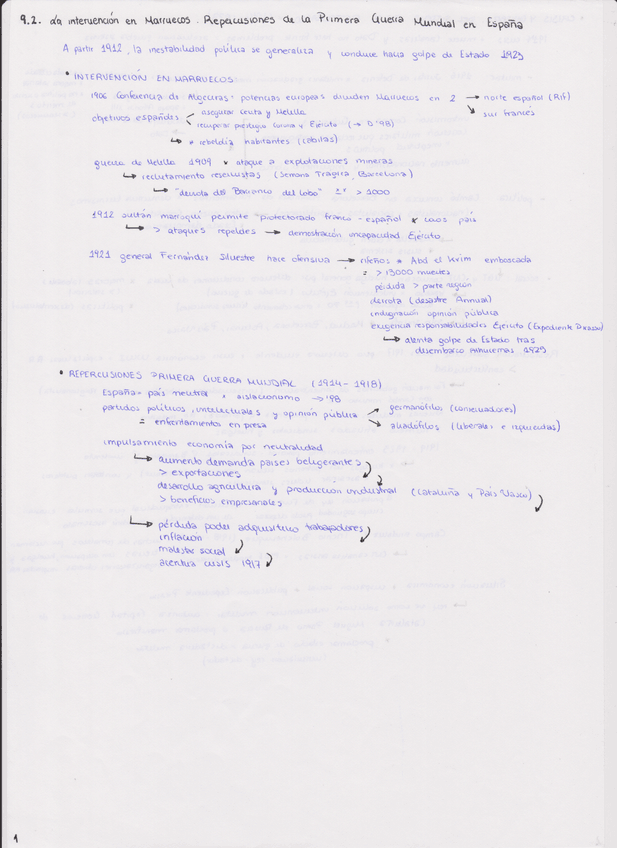 9.2. La intervención en Marruecos. Repercusiones de la Primera Guerra Mundial en España
A partir 1912, la inestabilidad política se generaliza y conduce hacia golpe de Estado 1923
• INTERVENCIÓN EN MARRUECOS:
1906 Conferencia de Algeciras: potencias europeas dividen Marruecos en 2 → norte español (Rif)
→ sur francés
objetivos españoles < asegurar Ceuta y Melilla
recuperar prestigio Corona y Ejército (→ D'98)
↳ * rebeldía habitantes (cabilas)
guerra de Melilla 1909 * ataque a explotaciones mineras
↳ reclutamiento reservistas (Semana Trágica, Barcelona)
↳ "derrota del Barranco del Lobo" > 1000
1912 sultán marroquí permite "protectorado franco-español * caos país
↳ > ataques rebeldes → demostración incapacidad Ejército
1921 general Fernández Silvestre hace ofensiva → rifeños * Abd el Krim emboscada
= > 13000 muertes
pérdida > parte región
derrota (desastre Annual)
indignación opinión pública
exigencia responsabilidades Ejército (Expediente Picasso)
↳ alenta golpe de Estado tras
desembarco Alhucemas 1925
• REPERCUSIONES PRIMERA GUERRA MUNDIAL (1914-1918)
España = país neutral * aislacionismo → '98
partidos políticos, intelectuales y opinión pública → germanófilos (conservadores)
= enfrentamiento en prensa → aliadófilos (liberales e izquierdas)
impulsamiento economía por neutralidad
↳ aumento demanda países beligerantes
> exportaciones
desarrollo agricultura y producción industrial (Cataluña y País Vasco)
> beneficios empresariales
↳ pérdida poder adquisitivo trabajadores
inflación
malestar social
acentúa crisis 1917
1